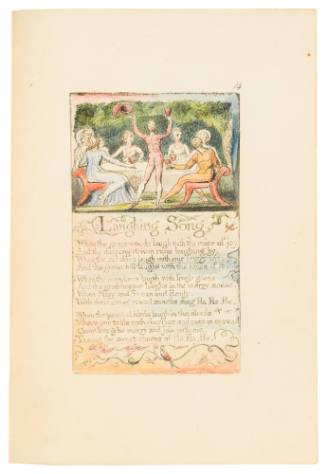 Laughing Song
When the green woods laugh with the voice of joy
And the dimpling stream runs laughing by,
When the air does laugh with our merry wit,
And the green hill laughs with the noise of it.
When the meadows laugh with lively green
And the grasshopper laughs in the merry scene,
When Mary and Susan and Emily,
With their sweet round mouths sing Ha, Ha, He.
When the painted birds laugh in the shade
Where our table with cherries and nuts is spread
Come live & be merry and join with me,
To sing the sweet chorus of Ha, Ha, He.